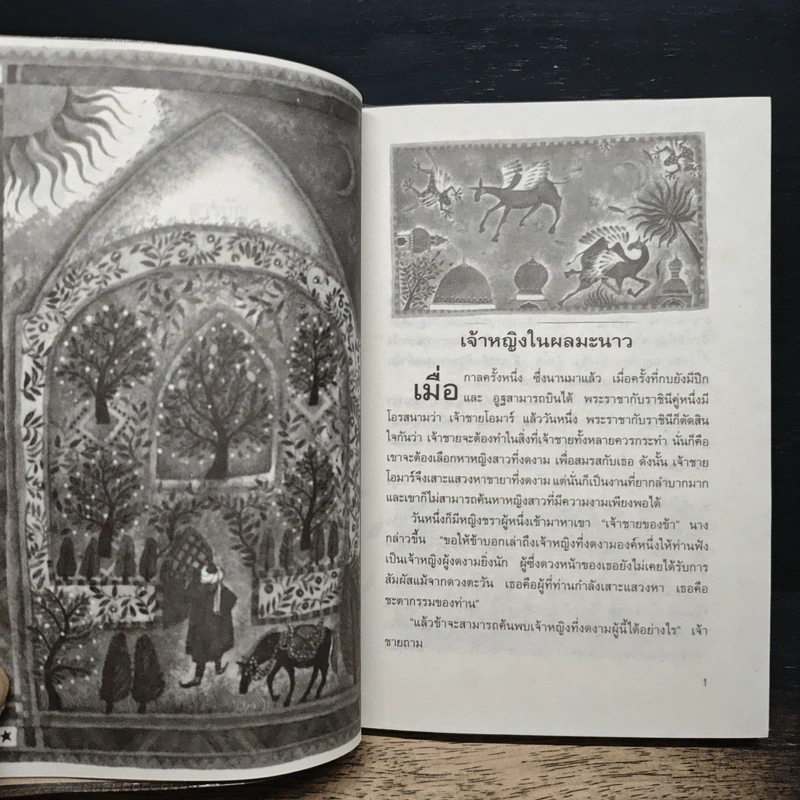 เจ้าหญิงในผลมะนาว
เมื่อ กาลครั้งหนึ่ง ซึ่งนานมาแล้ว เมื่อครั้งที่กบยังมีปีก
และ อูฐสามารถบินได้ พระราชากับราชินีคู่หนึ่งมี
โอรสนามว่า เจ้าชายโอมาร์ แล้ววันหนึ่ง พระราชากับราชินีก็ตัดสิน
ใจกันว่า เจ้าชายจะต้องทำในสิ่งที่เจ้าชายทั้งหลายควรกระทำ นั่นก็คือ
เขาจะต้องเลือกหาหญิงสาวที่งดงาม เพื่อสมรสกับเธอ ดังนั้น เจ้าชาย
โอมาร์จึงเสาะแสวงหาชายาที่งดงาม แต่นั่นก็เป็นงานที่ยากลำบากมาก
และเขาก็ไม่สามารถค้นหาหญิงสาวที่มีความงามเพียงพอได้
วันหนึ่งก็มีหญิงชราผู้หนึ่งเข้ามาหาเขา “เจ้าชายของข้า” นาง
กล่าวขึ้น “ขอให้ข้าบอกเล่าถึงเจ้าหญิงที่งดงามองค์หนึ่งให้ท่านฟัง
เป็นเจ้าหญิงผู้งดงามยิ่งนัก ผู้ซึ่งดวงหน้าของเธอยังไม่เคยได้รับการ
สัมผัสแม้จากดวงตะวัน เธอคือผู้ที่ท่านกำลังเสาะแสวงหา เธอคือ
ชะตากรรมของท่าน”
“แล้วข้าจะสามารถค้นพบเจ้าหญิงที่งดงามผู้นี้ได้อย่างไร” เจ้า
ชายถาม
1